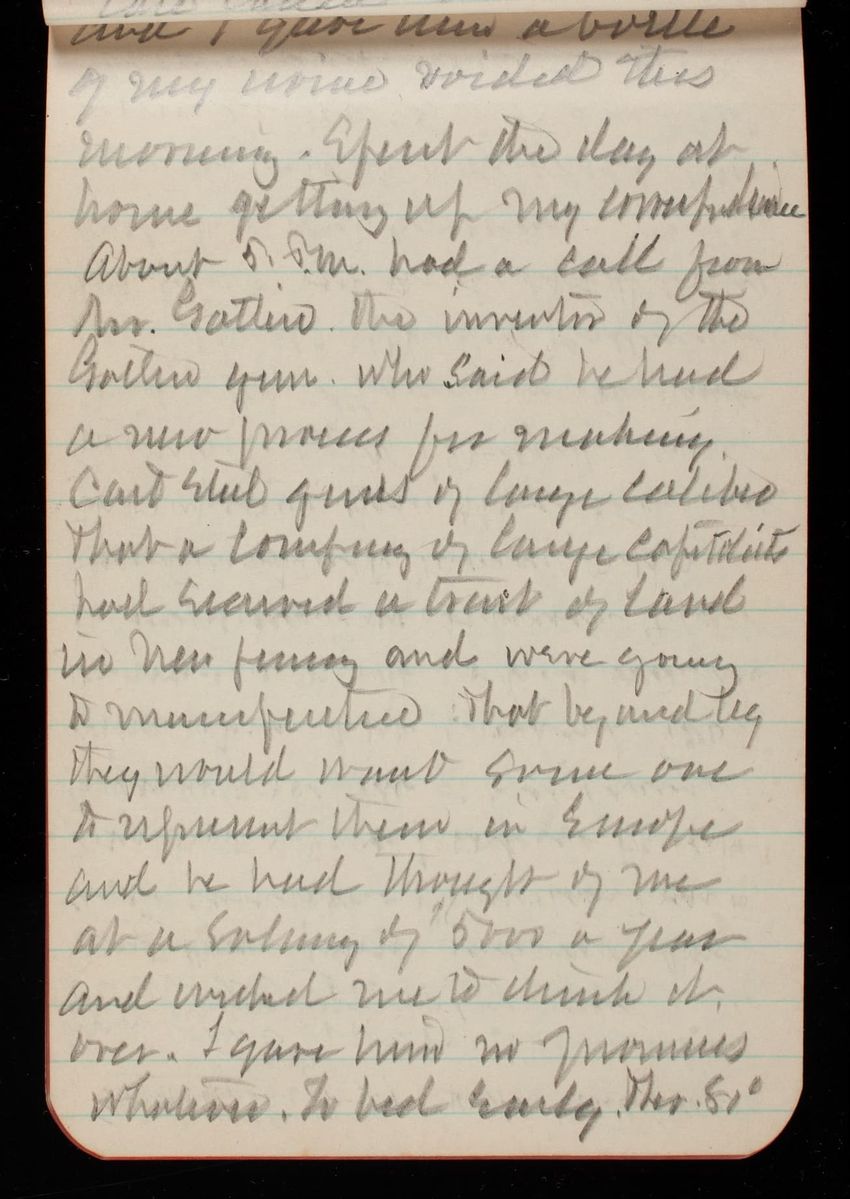 and I gave him a bottle
of my urine voided this
morning. Spent the day at
home getting up my correspondence
About 5 P.M. had a call from
Mr. Gatlin. the inventor of the
Gatlin gun. who said he had
a new process for making
Cast Steel guns of large calibre
that a company of large capitalists
had secured a tract of land
in New Jersey and were going
to manufacture that beyond
they would want some one
to represent them in Europe
and he had thought of me
at a salary of 5000 a year
and wished me to think it
over. I gave him no promises
whatever. To bed early. Ther. 81°